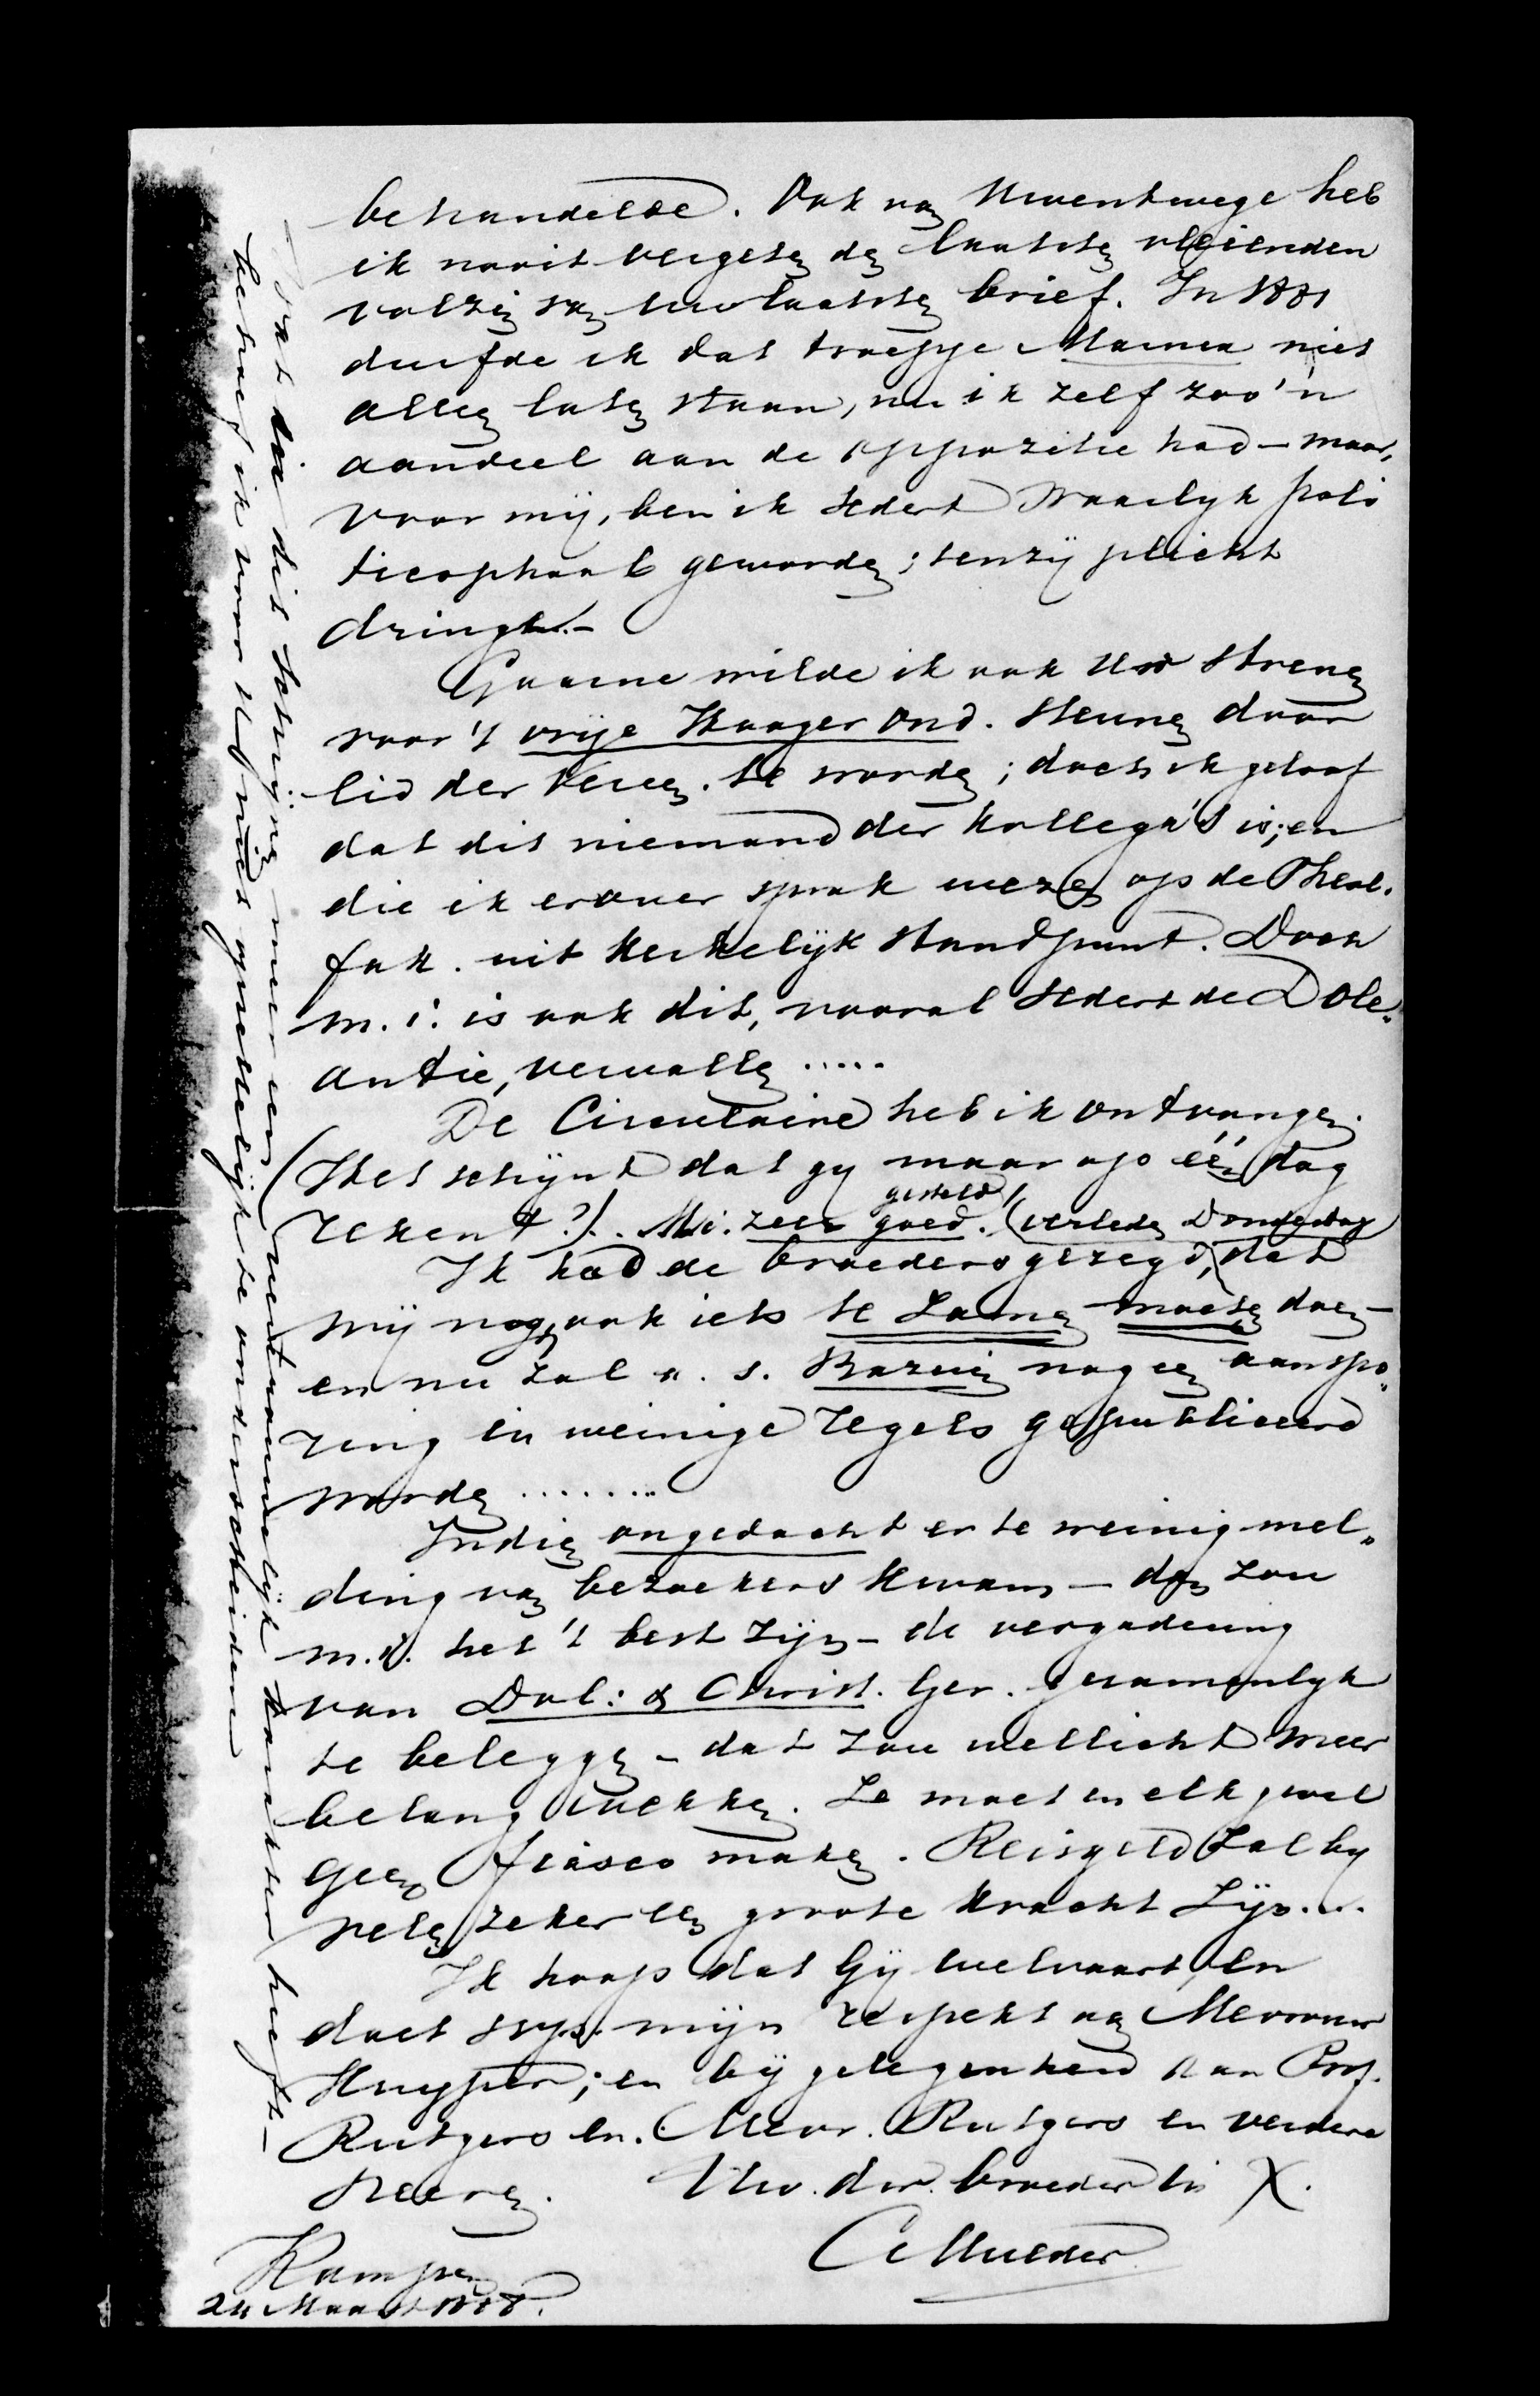 behandelde. Ook van Uwentwege heb
ik nooit vergeten den laatsten vleienden
volzin van uw laatsten brief. In 1881
durfde ik dat troepje Mannen niet
alleen laten staan, nu ik zelf zoo'n
aandeel aan de oppozitie had – maar,
voor mij, ben ik sedert waarlyk poli
ticophoob geworden; tenzij plicht
dringt. –
Gaarne wilde ik ook Uw streven
voor 't vrije Hooger Ond. steunen door
lid der Vereen. te worden; doch ik geloof
dat dit niemand der kollega's is; en
die ik erover sprak wezen op de Theol.
fak. uit kerkelijk standpunt. Doch
m. i. is ook dit, vooral sedert de Dole-
antie, vervallen .....
De Circulaire heb ik ontvangen.
(Het schijnt dat gy maar op één dag
rekent?). M.i. zeer goed gesteld.
(verleden Donderdag)
Ik had de broeders gezegd, dat
wij nog ook iets te Zamen moesten doen –
en nu zal a. s. Bazuin nog een aanspo-
ring in weinige regels gepubliceerd
worden .......
Indien ongedacht er te weinig mel-
ding van bezoekers kwam – dan zou
m. i. het 't best zijn – de vergadering
van Dol: & Christ. Ger. gezamenlyk
te beleggen – dat zou wellicht meer
belang wekken. Ze moet in elk geval
geen fiasco maken. Reisgeld zal by
velen zeker een groote kracht zijn...
Ik hoop dat Gij welvaart, en
doet svp. mijn respekt aan Mevrouw
Kuyper; en bij gelegenheid aan Prof.
Rutgers en Mevr. Rutgers en verdere
Heeren. Uw. dw. broeder in X.
C Mulder
Kampen
24 Maart 1888.
Dat dit schrijven meer een vertrouwelijk karakter heeft –
behoef ik voor U niet opzettelijk te onderscheiden